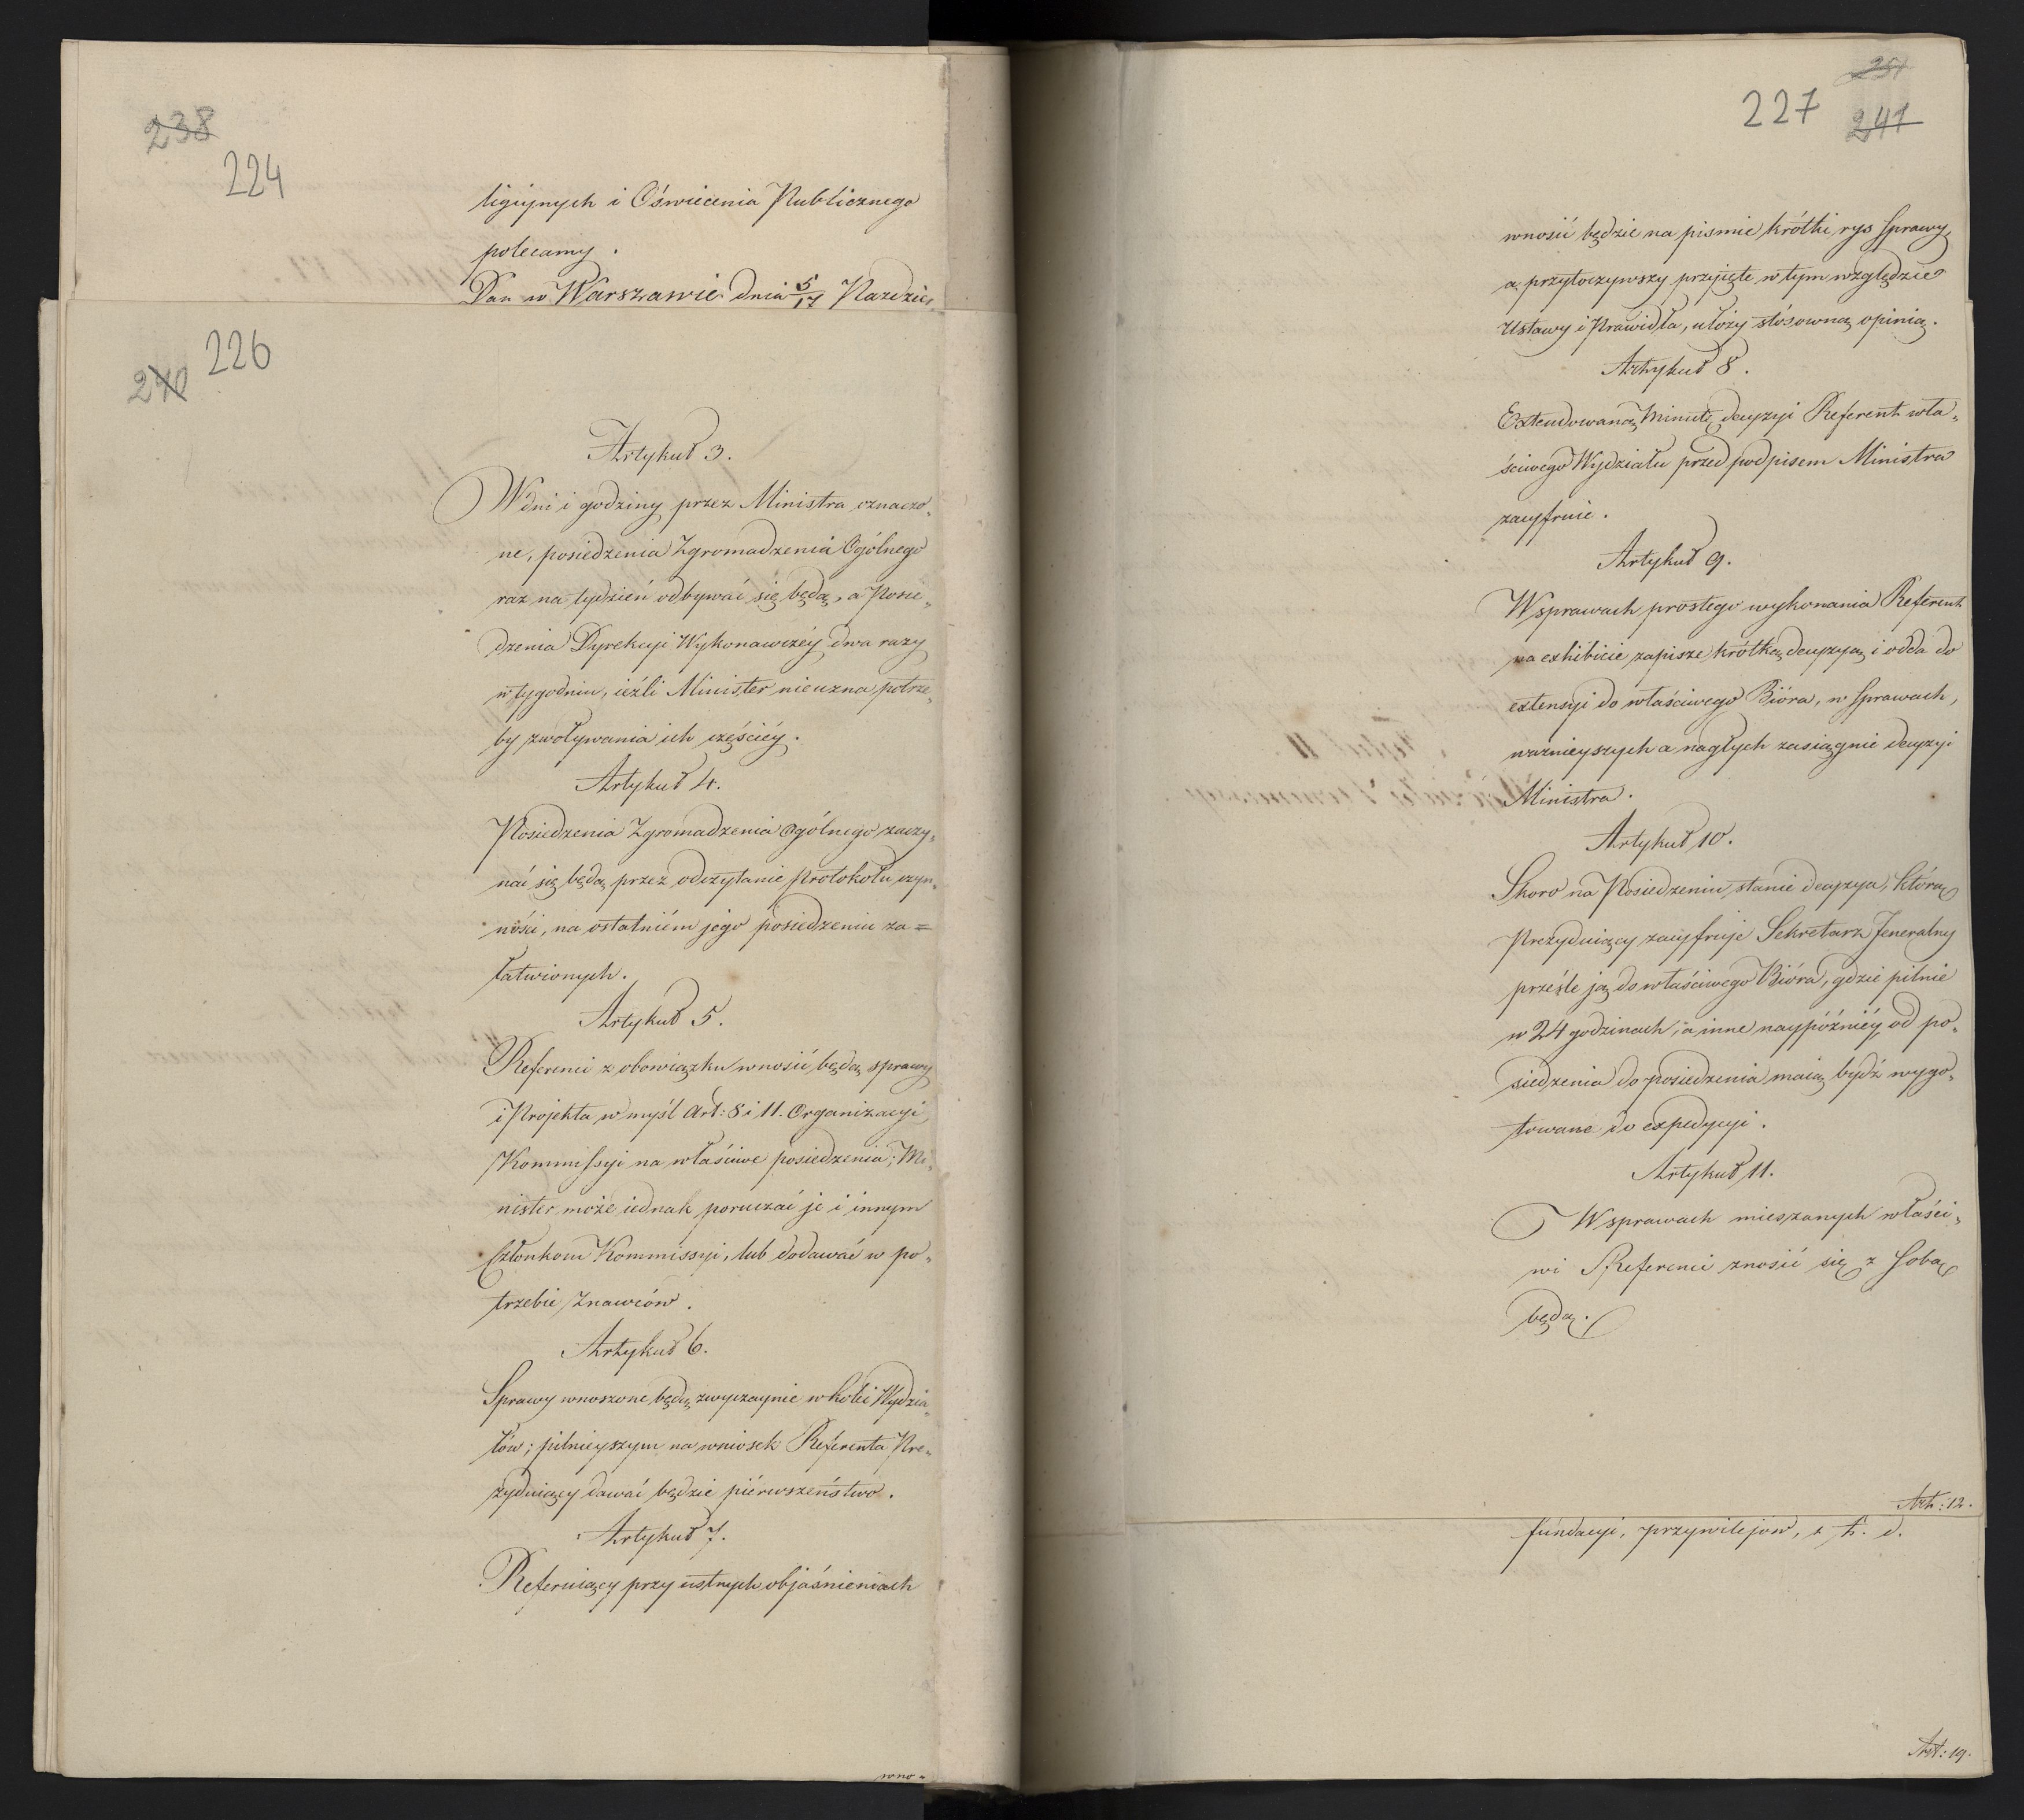 238
224
ligijnych i Oświecenia Publicznego
polecamy.
Dan w Warszawie dnia 5/17 Paździer
240
226
Artykuł 3.
W dni i godziny przez Ministra oznaczo„
ne, posiedzenia Zgromadzenia Ogólnego
raz na tydzień odbywać się będą, a Posie„
dzenia Dyrekcyi Wykonawczéy dwa razy
w tygodniu, ieźli Minister nieuzna potrze„
by zwoływania ich częściéy.
Artykuł 4.
Posiedzenia Zgromadzenia Ogólnego zaczy„
nać się będą przez odczytanie Protokółu czyn„
nóści, na ostatniém jego posiedzeniu za=
łatwionych.
Artykuł 5.
Referenci z obowiązku wnosić będą sprawy
i Projekta w myśl Art: 8 i 11. Organizacyi
Kommissyi na właściwe posiedzenia; Mi„
nister może iednak poruczać je i innym
Członkom Kommissyi, lub dodawać w po„
trzebie znawców.
Artykuł 6.
Sprawy wnoszone będą zwyczaynie w kolei Wydzia„
łów; pilnieyszym na wniosek Referenta Pre„
zyduiący dawać będzie piérwszeństwo.
Artykuł 7.
Referuiący przy ustnych objaśnieniach
wno„
227
241
wnosić będzie na pismie krótki rys sprawy,
a przytoczywszy przyjęte w tym względzie
Ustawy i Prawidła, ułoży stósowną opinią.
Artykuł 8.
Extendowaną Minutę decyzyi Referent wła„
ściwego Wydziału przed podpisem Ministra
zacyfruie.
Artykuł 9.
W sprawach prostego wykonania Referent
na exhibicie zapisze krótką decyzyą i odda do
extensyi do właściwego Bióra, w sprawach,
ważnieyszych a nagłych zasiągnie decyzyi
Ministra.
Artykuł 10.
Skoro na Posiedzeniu stanie decyzya, którą
Prezyduiący zacyfruje Sekretarz Jeneralny
prześle ją do właściwego Bióra, gdzie pilnie
w 24 godzinach, a inne naypóźniéy od po„
siedzenia do posiedzenia maią bydź wygo„
towane do expedycyi.
Artykuł 11.
W sprawach mieszanych właści„
wi Referenci znosić się z sobą
będą.
Art: 12.
fundacyi, przywilejow, i t. d.
Art: 19.